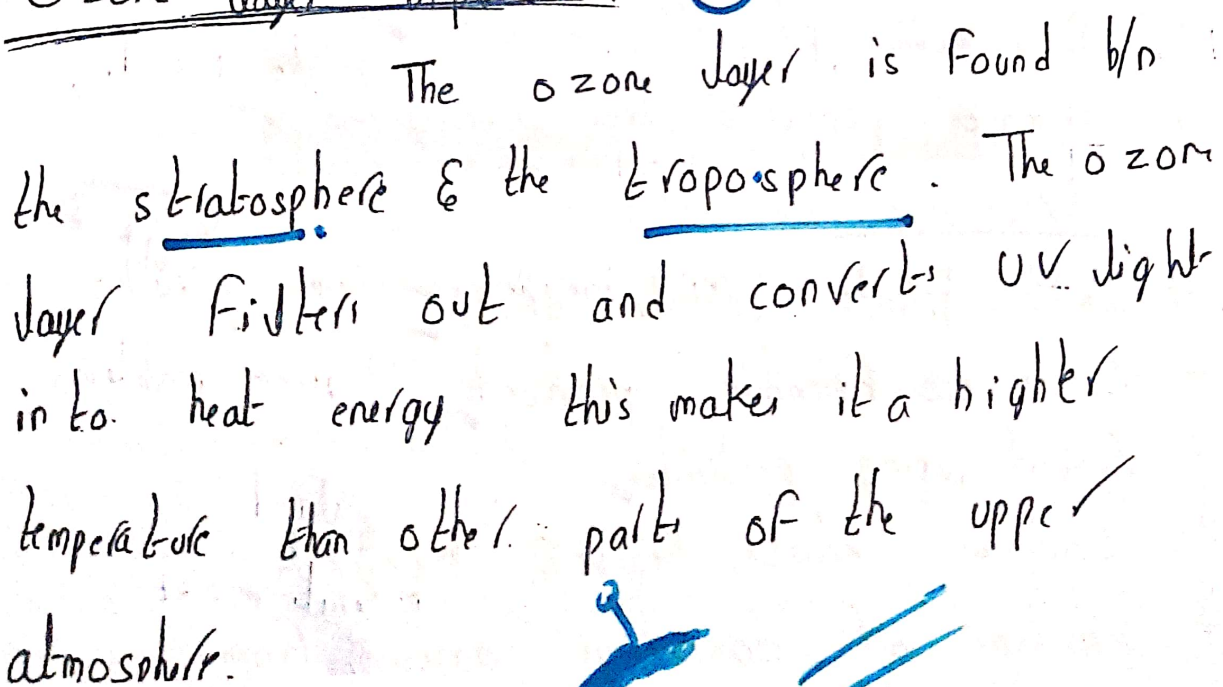 ozone layer
The ozone layer is found b/n
the stratosphere & the troposphere. The ozone
layer filters out and converts UV light
in to heat energy this makes it a highter
temperature than other parts of the upper
atmosphere.